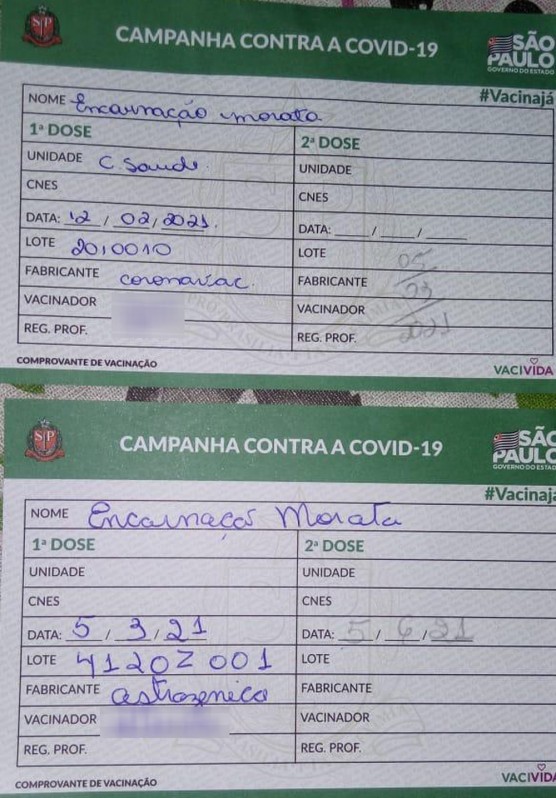 CAMPANHA CONTRA A COVID-19
SÃO PAULO
GOVERNO DO ESTADO
#Vacinajá
NOME Encarnação morata
1ª DOSE 2ª DOSE
UNIDADE C. Saude. UNIDADE
CNES CNES
DATA: 12 / 02 / 2021. DATA: ___ / ___ / ___
LOTE 2010010 LOTE 05/
FABRICANTE coronavac. FABRICANTE 03
VACINADOR VACINADOR
REG. PROF. REG. PROF. 2021
COMPROVANTE DE VACINAÇÃO VACIVIDA
SP
CAMPANHA CONTRA A COVID-19
SÃO PAULO
GOVERNO DO ESTADO
#Vacinajá
NOME Encarnaçaõ Morata
1ª DOSE 2ª DOSE
UNIDADE UNIDADE
CNES CNES
DATA: 5 / 3 / 21 DATA: 5 / 6 / 21
LOTE 4120Z001 LOTE
FABRICANTE astrazenica FABRICANTE
VACINADOR VACINADOR
REG. PROF. REG. PROF.
COMPROVANTE DE VACINAÇÃO VACIVIDA